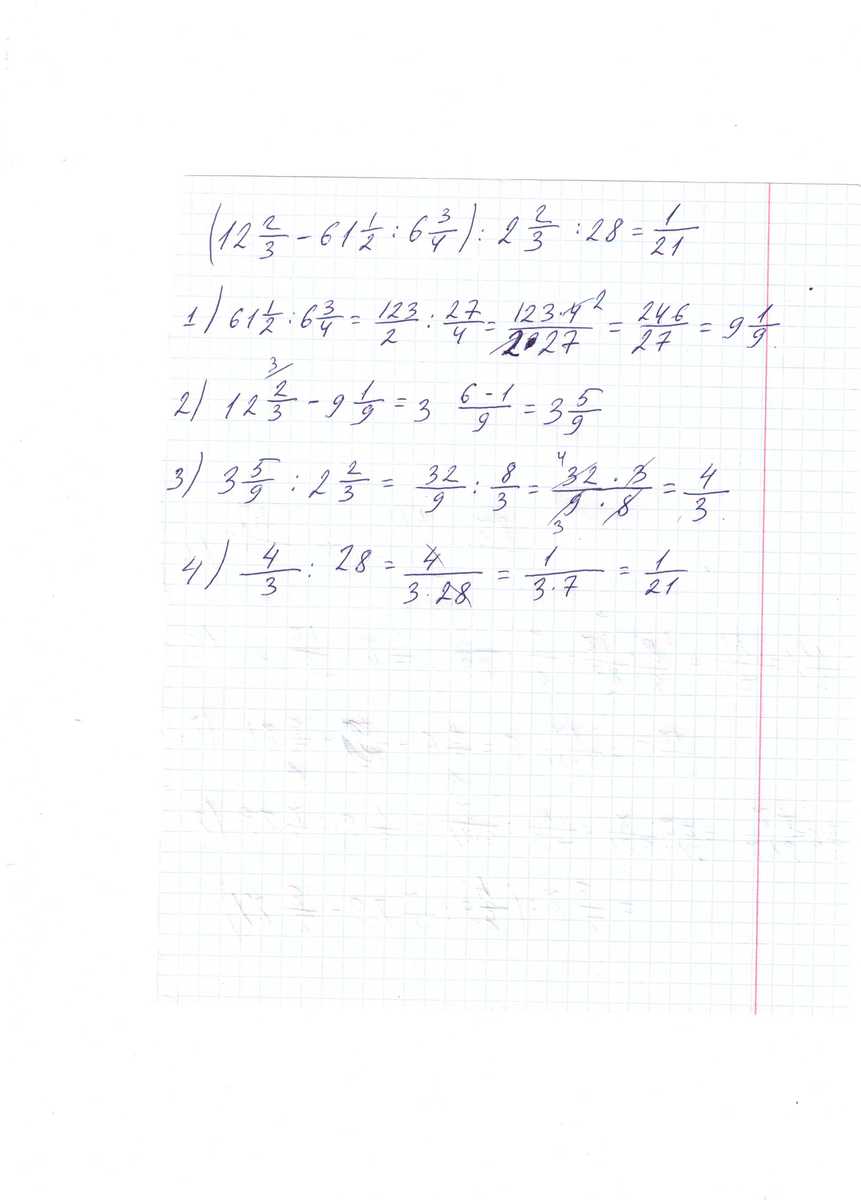 (12 2/3 - 61 1/2 : 6 3/4) : 2 2/3 : 28 = 1/21
1) 61 1/2 : 6 3/4 = 123/2 : 27/4 = 123·4 2/2·27 = 246/27 = 9 1/9
2) 12 3/ 2/3 - 9 1/9 = 3 6-1/9 = 3 5/9
3) 3 5/9 : 2 2/3 = 32/9 : 8/3 = 4 32·3/9·8 3 = 4/3
4) 4/3 : 28 = 4/3·28 = 1/3·7 = 1/21